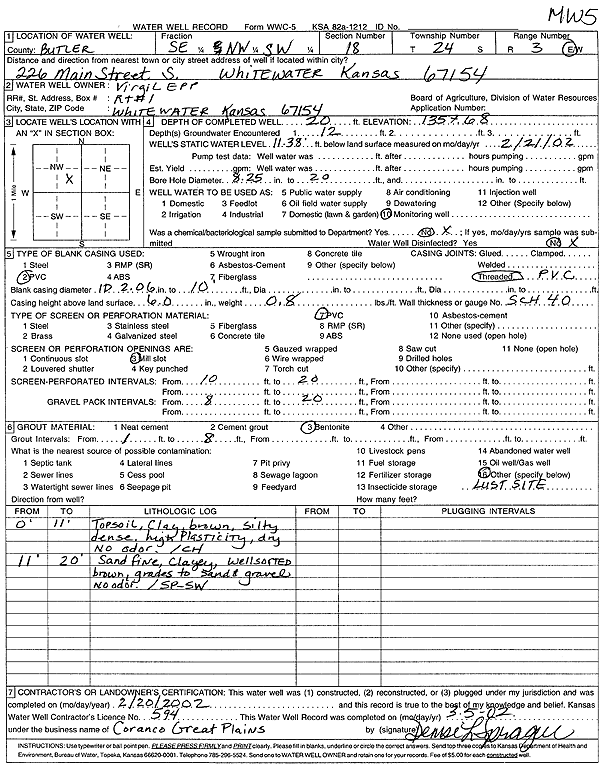 MW5
WATER WELL RECORD Form WWC-5 KSA 82a-1212 ID No.
1 LOCATION OF WATER WELL: Fraction Section Number Township Number Range Number
County: BUTLER SE ¼ SNW ¼ SW ¼ 18 T 24 S R 3 E/W
Distance and direction from nearest town or city street address of well if located within city?
226 Main Street S. Whitewater Kansas 67154
2 WATER WELL OWNER: Virgil Epp
RR#, St. Address, Box # : Rt#1 Board of Agriculture, Division of Water Resources
City, State, ZIP Code : Whitewater Kansas 67154 Application Number:
3 LOCATE WELL'S LOCATION WITH AN "X" IN SECTION BOX:
N
NW NE
X
W E
SW SE
S
1 Mile
4 DEPTH OF COMPLETED WELL 20 ft. ELEVATION: 1357.68
Depth(s) Groundwater Encountered 1 12 ft. 2. ft. 3. ft.
WELL'S STATIC WATER LEVEL 11.38 ft. below land surface measured on mo/day/yr 2/21/02
Pump test data: Well water was ft. after hours pumping gpm
Est. Yield gpm: Well water was ft. after hours pumping gpm
Bore Hole Diameter 8.25 in. to 20 ft., and in. to ft.
WELL WATER TO BE USED AS: 5 Public water supply 8 Air conditioning 11 Injection well
1 Domestic 3 Feedlot 6 Oil field water supply 9 Dewatering 12 Other (Specify below)
2 Irrigation 4 Industrial 7 Domestic (lawn & garden) 10 Monitoring well
Was a chemical/bacteriological sample submitted to Department? Yes No X ; If yes, mo/day/yrs sample was submitted Water Well Disinfected? Yes No X
5 TYPE OF BLANK CASING USED: 5 Wrought iron 8 Concrete tile CASING JOINTS: Glued Clamped
1 Steel 3 RMP (SR) 6 Asbestos-Cement 9 Other (specify below) Welded
2 PVC 4 ABS 7 Fiberglass Threaded PVC
Blank casing diameter ID 2.06 in. to 10 ft., Dia in. to ft., Dia in. to ft.
Casing height above land surface 6.0 in., weight 0.8 lbs./ft. Wall thickness or gauge No. SCH 40
TYPE OF SCREEN OR PERFORATION MATERIAL: 7 PVC 10 Asbestos-cement
1 Steel 3 Stainless steel 5 Fiberglass 8 RMP (SR) 11 Other (specify)
2 Brass 4 Galvanized steel 6 Concrete tile 9 ABS 12 None used (open hole)
SCREEN OR PERFORATION OPENINGS ARE: 5 Gauzed wrapped 8 Saw cut 11 None (open hole)
1 Continuous slot 3 Mill slot 6 Wire wrapped 9 Drilled holes
2 Louvered shutter 4 Key punched 7 Torch cut 10 Other (specify) ft.
SCREEN-PERFORATED INTERVALS: From 10 ft. to 20 ft., From ft. to ft.
From ft. to ft., From ft. to ft.
GRAVEL PACK INTERVALS: From 8 ft. to 20 ft., From ft. to ft.
From ft. to ft., From ft. to ft.
6 GROUT MATERIAL: 1 Neat cement 2 Cement grout 3 Bentonite 4 Other
Grout Intervals: From 1 ft. to 8 ft., From ft. to ft., From ft. to ft.
What is the nearest source of possible contamination: 10 Livestock pens 14 Abandoned water well
1 Septic tank 4 Lateral lines 7 Pit privy 11 Fuel storage 15 Oil well/Gas well
2 Sewer lines 5 Cess pool 8 Sewage lagoon 12 Fertilizer storage 16 Other (specify below)
3 Watertight sewer lines 6 Seepage pit 9 Feedyard 13 Insecticide storage LUST SITE
Direction from well? How many feet?
FROM TO LITHOLOGIC LOG FROM TO PLUGGING INTERVALS
0' 11' Topsoil, Clay, brown, silty
dense, high Plasticity, dry
No odor. /CH
11' 20' Sand fine, Clayey, well sorted
brown, grades to sand & gravel
No odor. /SP-SW
7 CONTRACTOR'S OR LANDOWNER'S CERTIFICATION: This water well was (1) constructed, (2) reconstructed, or (3) plugged under my jurisdiction and was
completed on (mo/day/year) 2/20/2002 and this record is true to the best of my knowledge and belief. Kansas
Water Well Contractor's Licence No. 594 This Water Well Record was completed on (mo/day/yr) 3-5-02
under the business name of Coranco Great Plains by (signature)
INSTRUCTIONS: Use typewriter or ball point pen. PLEASE PRESS FIRMLY and PRINT clearly. Please fill in blanks, underline or circle the correct answers. Send top three copies to Kansas Department of Health and
Environment, Bureau of Water, Topeka, Kansas 66620-0001. Telephone 785-296-5524. Send one to WATER WELL OWNER and retain one for your records. Fee of $5.00 for each constructed well.